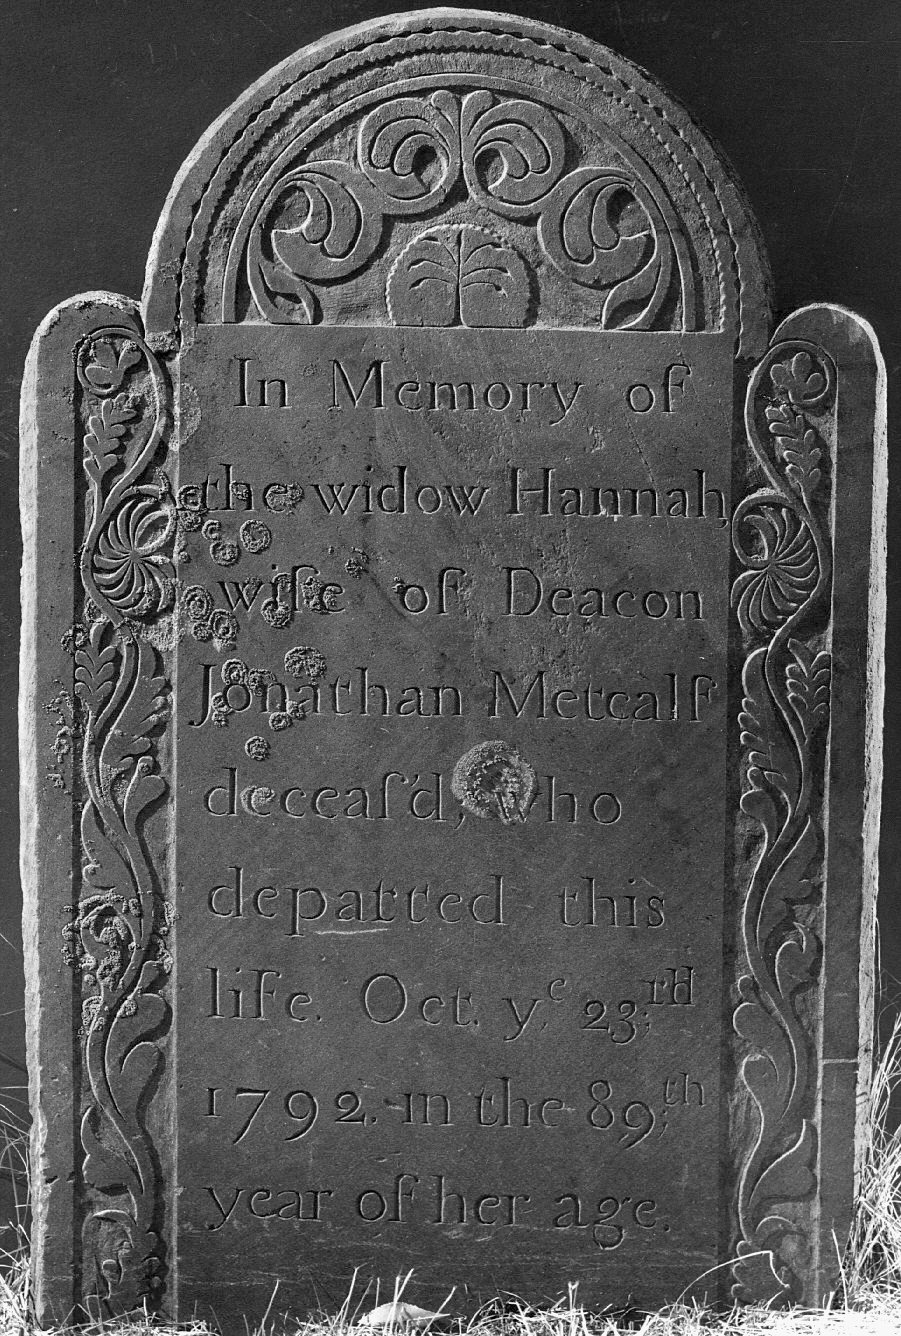 In Memory of
the widow Hannah,
wife of Deacon
Jonathan Metcalf
deceaſ'd, who
depatted this
life. Oct. yᵉ. 23.ʳᵈ
1792. in the 89.ᵗʰ
year of her age.